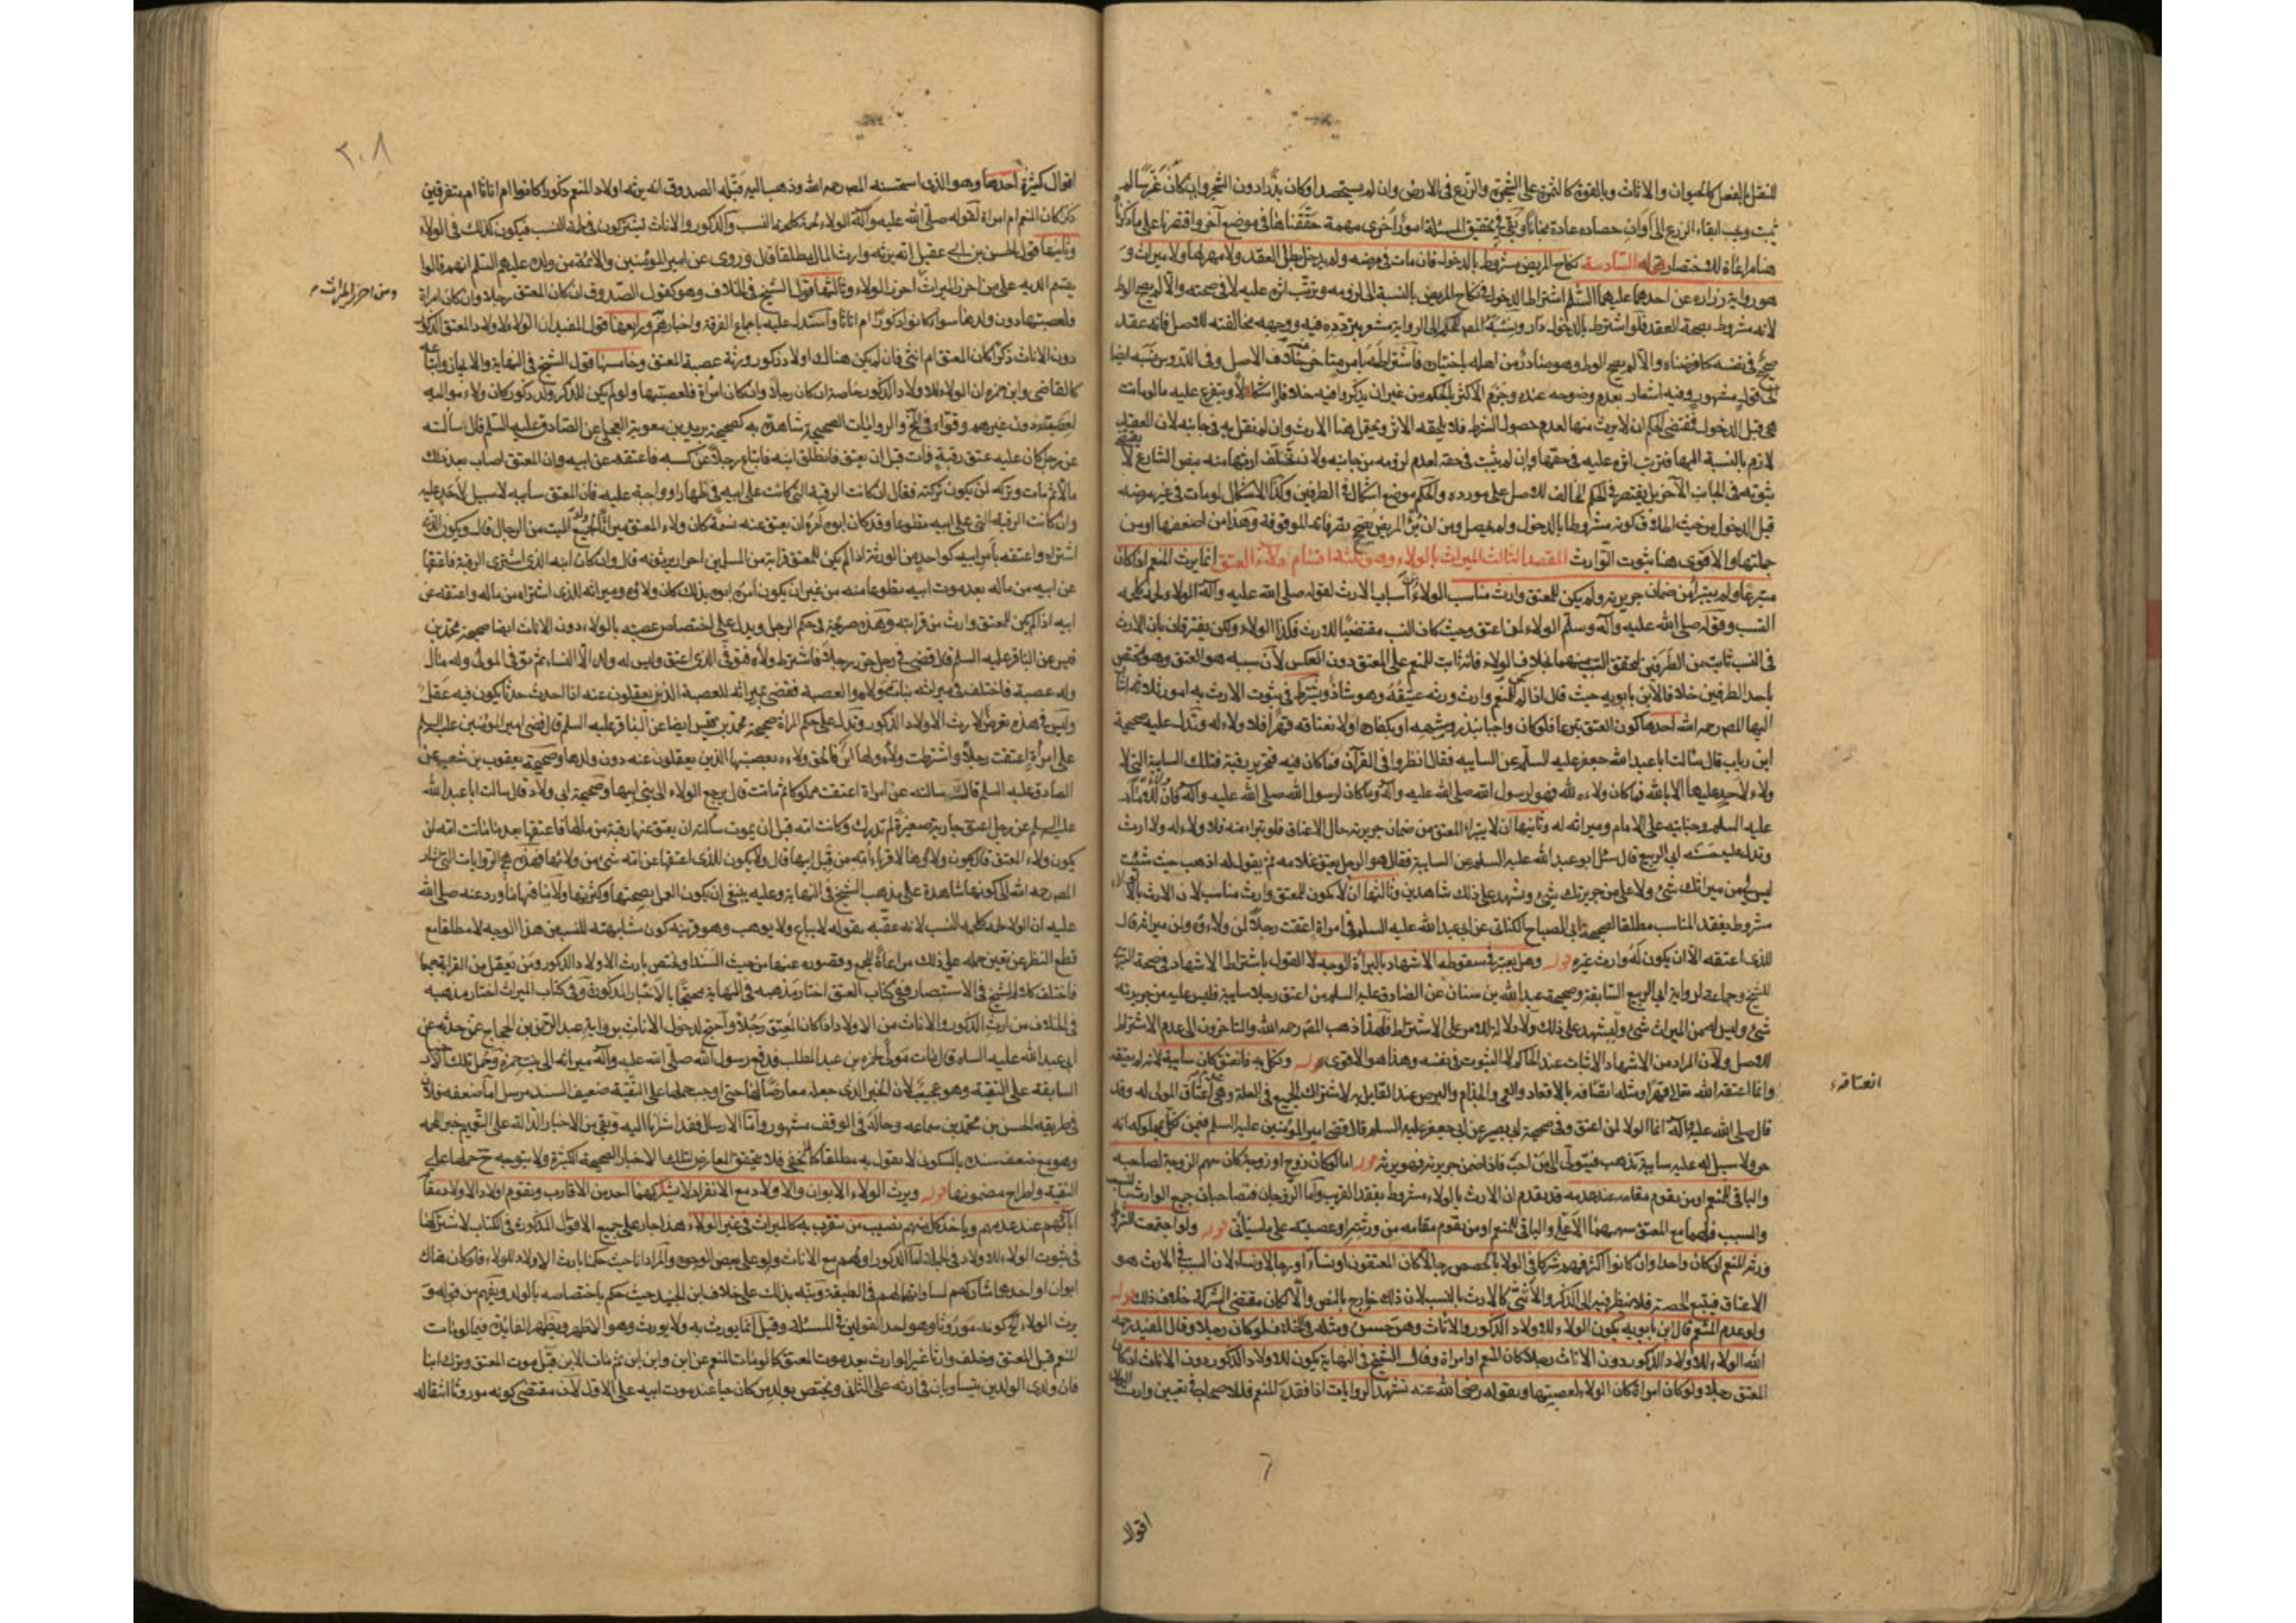 للنقل بالفعل كالحيوان والاثاث وبالقوة كالثمرة على الشجرة والزرع فى الارض وان لم يستحصد او كان بذرا دون الشجر وان كان غرسا لم
يثبت ويجب ابقاء الزرع الى اوان حصاده عادة مجانا وبقى فى تحقيق المسئلة امور اخرى مهمة حققناها فى موضع آخر واقتصرنا على ما ذكرنا
هنا مراعاة للاختصار قوله السادسة نكاح المريض مشروط بالدخول فان مات فى مرضه ولم يدخل بطل العقد ولا مهر لها ولا ميراث و
هو رواية زرارة عن احدهما عليهما السلام اشتراط الدخول فى نكاح المريض بالنسبة الى لزومه وترتب اثره عليه لا فى صحته والا لم يصح الوطء
لانه مشروط بصحة العقد فلو اشترط بالدخول دار ونسبة المصـ الحكم الى الرواية مشعر بتردده فيه ووجهه مخالفته للاصل فانه عقد
صحيح فى نفسه كما فرضناه والا لم يصح الوطء وهو صادر من اهله باختياره فاشتراطه بامر متاخر خلاف الاصل وفى الدروس نسبه ايضا
الى قول مشهور وفيه اشعار بعدم وضوحه عنده وجزم الاكثر بالحكم من غير ان يذكروا فيه خلافا او اشكالا ويتفرع عليه ما لو ماتت
هى قبل الدخول فمقتضى الحكم ان لا يرث منها لعدم حصول الشرط فلا يلحقه الاثر ويحتمل هنا الارث وان لم نقل به فى جانبه لان العقد
لازم بالنسبة اليها فترتب اثره عليه فى حقها وان لم يثبت فى حقه لعدم لزومه من جانبه ولا تخلف ارثها منه بنص الشارع لا يقتضى
ثبوته فى الجانب الآخر بل يقتصر فى الحكم المخالف للاصل على مورده والحكم موضع اشكال فى الطرفين وكذا الاشكال لو مات فى غير مرضه
قبل الدخول من حيث اطلاق كونه مشروطا بالدخول ولم يحصل ومن ان برء المريض يصحح تصرفاته الموقوفة وهذا من اضعفها او من
جملتها والاقوى هنا ثبوت التوارث المقصد الثالث الميراث بالولاء وهو ثلثة اقسام ولاء العتق انما يرث المنعم اذا كان
متبرعا ولم يتبرأ من ضمان جريرته ولم يكن للمعتق وارث مناسب الولاء من اسباب الارث لقوله صلى الله عليه وآله الولاء لحمة كلحمة
النسب وقوله صلى الله عليه وآله وسلم الولاء لمن اعتق وحيث كان النسب مقتضيا للارث فكذا الولاء ولكن يفترقان بان الارث
فى النسب ثابت من الطرفين لتحقق النسب منهما بخلاف الولاء فانه ثابت للمنعم على المعتق دون العكس لان سببه هو العتق وهو مختص
باحد الطرفين خلافا لابن بابويه حيث قال اذا لم يكن للمنعم وارث ورثه عتيقه وهو شاذ ويشترط فى ثبوت الارث به امور ثلاثة اشار
اليها المصـ رحمه الله احدها كون العتق تبرعا فلو كان واجبا بنذر وشبهه او بكفارة او لانعتاقه قهرا فلا ولاء له وتدل عليه صحيحة
ابن رياب قال سالت ابا عبد الله جعفر عليه السلام عن السايبة فقال انظروا فى القرآن فما كان فيه فتحرير رقبة فتلك السايبة التى لا
ولاء لاحد عليها الا بالله فما كان ولاءه لله فهو لرسول الله صلى الله عليه وآله وما كان لرسول الله صلى الله عليه وآله فان للامام
عليه السلم وجنايته على الامام وميراثه له وثانيها ان لا يتبرأ المعتق من ضمان جريرته حال الاعتاق فلو تبراء منه فلا ولاء له ولا ارث
وتدل عليه حسنة ابى الربيع قال سئل ابو عبد الله عليه السلم عن السايبة فقال هو الرجل يعتق غلامه ثم يقول له اذهب حيث شئت
ليس لى من ميراثك شئ ولا على من جريرتك شئ ويشهد على ذلك شاهدين وثالثها ان لا يكون للمعتق وارث مناسب لان الارث بالولاء
مشروط بفقد المناسب مطلقا لصحيحة ابى الصباح الكنانى عن ابى عبد الله عليه السلم فى امراة اعتقت رجلا لمن ولاءه ولمن ميراثه قال
للذى اعتقه الا ان يكون له وارث غيره قوله وهل يعتبر فى سقوطه الاشهاد بالبراءة الوجه لا القول باشتراط الاشهاد فى صحة التبرى
للشيخ وجماعة لرواية ابى الربيع السابقة وصحيحة عبد الله بن سنان عن الصادق عليه السلم من اعتق رجلا سايبة فليس عليه من جريرته
شئ وليس له من الميراث شئ وليشهد على ذلك ولا دلالة للامر على الاشتراط فلهذا ذهب المصـ رحمه الله والمتاخرون الى عدم الاشتراط
للاصل ولان المراد من الاشهاد الاثبات عند الحاكم لا الثبوت فى نفسه وهذا هو الاقوى قوله ونكل به فانعتق كان سايبة لانه لم يعتقه
وانما اعتقه الله تعالى قهرا ومثله انعتاقه بالاقعاد والعمى والجذام والبرص عند القايل به لاشتراك الجميع فى العلة وهى عدم اعتاق المولى له وقد
انعتاقه
قال صلى الله عليه وآله انما الولاء لمن اعتق وفى صحيحة ابى بصير عن ابى جعفر عليه السلم قال قضى امير المؤمنين عليه السلم فيمن نكل بمملوكه انه
حر ولا سبيل له عليه سايبة يذهب فيتولى الى من احب فاذا ضمن جريرته فهو يرثه قوله اما لو كان زوج او زوجة كان سهم الزوجية لصاحبه
والباقى للمنعم او من يقوم مقامه عند عدمه قد يقدم ان الارث بالولاء مشروط بفقد القريب واما الزوجان فيصاحبان جميع الوارث بالنسب
والسبب فلهما مع المعتق سهمهما الاعلى والباقى للمنعم او من يقوم مقامه من ورثته او عصبته على ما سياتى قوله ولو اجتمعت الشرايط
ورثه المنعم ان كان واحدا وان كانوا اكثر فهم شركا فى الولا بالحصص رجالا كان المعتقون او نساء او رجالا ونساء لان السبب فى الارث هو
الاعتاق فيتبع الحصة فلا ينظر فيه الى الذكر والانثى كالارث بالنسب لان ذلك خارج بالنص والا لكان مقتضى الشركة خلاف ذلك قوله
ولو عدم المنعم قال ابن بابويه يكون الولاء للاولاد الذكور والاناث وهو حسن ومثله فى الخلاف لو كان رجلا وقال المفيد رحمه
الله الولاء للاولاد الذكور دون الاناث رجلا كان المنعم او امراة وقال الشيخ فى النهاية يكون للاولاد الذكور دون الاناث ان كان
المعتق رجلا ولو كان امراة كان الولاء لعصبتها وبقوله رضى الله عنه تشهد الروايات اذا فقد المنعم فللاصحاب فى تعيين وارث الولاء
اقوالا
٢٠٨
اقوال كثيرة احدها وهو الذى استحسنه المصـ رحمه الله وذهب اليه قبله الصدوق انه يرثه اولاد المنعم ذكورا كانوا ام اناثا ام متفرقين
ذكرا كان المنعم ام امراة لقوله صلى الله عليه وآله الولاء لحمة كلحمة النسب والذكور والاناث يشتركون فى لحمة النسب فيكون كذلك فى الولاء
وثانيها قول الحسن بن ابى عقيل انه يرثه وارث المال مطلقا قال وروى عن امير المؤمنين والائمة من ولده عليهم السلم انهم قالوا
يقسم الدية على من احرز الميراث احرز الولاء وثالثها قول الشيخ فى الخلاف وهو كقول الصدوق ان كان المعتق رجلا وان كان امراة
ومن احرز الميراث
فلعصبتها دون ولدها سواء كانوا ذكورا ام اناثا واستدل عليه باجماع الفرقة واخبارهم ورابعها قول المفيد ان الولاء لاولاد المعتق الذكور
دون الاناث ذكرا كان المعتق ام انثى فان لم يكن هناك اولاد ذكور ورثه عصبة المعتق وخامسها قول الشيخ فى النهاية والايجاز واتباعه
كالقاضى وابن حمزة ان الولاء للاولاد الذكور خاصة ان كان رجلا وان كان امراة فلعصبتها ولو لم يكن للذكر ولد ذكور كان ولاء مواليه
لعصبته دون غيرهم وقواه فى والروايات الصحيحة شاهدة به كصحيحة بريد بن معوية العجلى عن الصادق عليه السلم قال سالته
عن رجل كان عليه عتق رقبة فمات قبل ان يعتق فانطلق ابنه فابتاع رجلا من كسبه فاعتقه عن ابيه وان المعتق اصاب بعد ذلك
مالا ثم مات وتركه لمن يكون تركته فقال ان كانت الرقبة التى كانت على ابيه فى ظهار او واجبة عليه فان المعتق سايبه لا سبيل لاحد عليه
وان كانت الرقبة التى على ابيه تطوعا وقد كان ابوه امره ان يعتق عنه نسمة كان ولاء المعتق ميراثا لجميع ولد الميت من الرجال قال ويكون الذى
اشتراه واعتقه بامر ابيه كواحد من الورثة اذا لم يكن للمعتق قرابة من المسلمين احرار يرثونه قال وان كان ابنه الذى اشترى الرقبة فاعتقها
عن ابيه من ماله بعد موت ابيه تطوعا منه من غير ان يكون امره ابوه بذلك كان ولاؤه وميراثه للذى اشتراه من ماله واعتقه عن
ابيه اذا لم يكن للمعتق وارث من قرابته وهذه صريحة فى حكم الرجل ويدل على اختصاص عصبته بالولاء دون الاناث ايضا صحيحة محمد بن
قيس عن الباقر عليه السلم قال قضى فى رجل حرر رجلا فاشترط ولاءه فتوفى الذى اعتق وليس له ولد الا النساء ثم توفى المولى وله مال
وله عصبة فاختلف فى ميراثه بناته ولاءه والعصبة فقضى بميراثه للعصبة الذين يعقلون عنه اذا احدث حدثا يكون فيه عقل
وليس فى هذه تعرض لارث الاولاد الذكور وتدل على حكم المراة صحيحة محمد بن قيس ايضا عن الباقر عليه السلم قال قضى امير المؤمنين عليه السلام
على امراة اعتقت رجلا واشترطت ولاءه ولها ابن فالحق ولاءه بعصبتها الذين يعقلون عنه دون ولدها وصحيحة يعقوب بن شعيب عن
الصادق عليه السلم قال سالته عن امراة اعتقت مملوكا ثم ماتت قال يرجع الولاء الى بنى ابيها وصحيحة ابى ولاد قال سالت ابا عبد الله
عليه السلم عن رجل اعتق جارية صغيرة لم تدرك وكانت امه قبل ان يموت سالته ان يعتق عنها رقبة من مالها فاعتقها بعد ما ماتت امه لمن
يكون ولاء المعتق قال يكون ولاؤها لاقرباء امه من قبل ابيها قال ولا يكون للذى اعتقها عن امه شئ من ولائها فهذه هى الروايات التى اشار
المصـ رحمه الله الى كونها شاهدة على مذهب الشيخ فى النهاية وعليه ينبغى ان يكون العمل بصحتها وكثرتها ولا ينافيها ما ورد عنه صلى الله
عليه ان الولاء لحمة كلحمة النسب لانه عقبه بقوله لا يباع ولا يوهب وهو قرينة كون مشابهته للنسب من هذا الوجه لا مطلقا مع
قطع النظر عن تعين حمله على ذلك مراعاة للجمع وقصوره عنها من حيث السند او فنص بارث الاولاد الذكور ومن يعقل من القرابة جمعا
فاختلف كلام الشيخ فى الاستبصار ففى كتاب العتق اختار مذهبه فى النهاية محتجا بالاخبار المذكورة وفى كتاب الميراث اختار مذهبه
فى الخلاف من ارث الذكور والاناث من الاولاد اذا كان المعتق رجلا واحتج لدخول الاناث برواية عبد الرحمن بن الحجاج عمن حدثه عن
ابى عبد الله عليه السلم قال مات مولى لحمزة بن عبد المطلب فدفع رسول الله صلى الله عليه وآله ميراثه الى بنت حمزة وحمل تلك الاخبار
السابقة على التقية وهو عجيب لان الخبر الذى جعله معارضا لها حتى اوجب حملها على التقية ضعيف السند مرسل اما ضعفه فلان
فى طريقه الحسن بن محمد بن سماعه وحاله فى الوقف مشهور واما الارسال فقد اشرنا اليه وبقى من الاخبار الدالة على التعميم خبر اللحمة
وهو مع ضعف سنده بالسكونى لا نقول به مطلقا كما لا يخفى فلا يتحقق المعارض لتلك الاخبار الصحيحة الكثيرة ولا يتوجه ح حملها على
التقية واطراح مضمونها قوله ويرث الولاء الابوان والاولاد مع الانفراد لا يشركهما احد من الاقارب ويقوم اولاد الاولاد مقام
ابائهم عند عدمهم وياخذ كل منهم نصيب من يتقرب به كالميراث فى غير الولاء هذا جار على جميع الاقوال المذكورة فى الكتاب لاشتراكها
فى ثبوت الولاء للاولاد فى الجملة اما الذكور او هم مع الاناث ولو على بعض الوجوه والمراد انا حيث حكمنا بارث الاولاد للولاء فلو كان هناك
ابوان او احدهما شاركهم لمساواتهما لهم فى الطبقة ونبه بذلك على خلاف ابن الجنيد حيث حكم باختصاصه بالولد ويفهم من قوله و
يرث الولاء كونه موروثا وهو احد القولين فى المسئلة وقيل انما يورث به ولا يورث وهو الاظهر ويظهر الفايدة فيما لو مات
المنعم قبل المعتق وخلف وارثا غير الوارث بعد موت المعتق كما لو مات المنعم عن ابن وابن ابن ثم مات الابن قبل موت المعتق وترك ابنا
فان ولدى الولدين يتساويان فى ارثه على الثانى ويختص بولد من كان حيا عند موت ابيه على الاول لان مقتضى كونه موروثا انتقاله